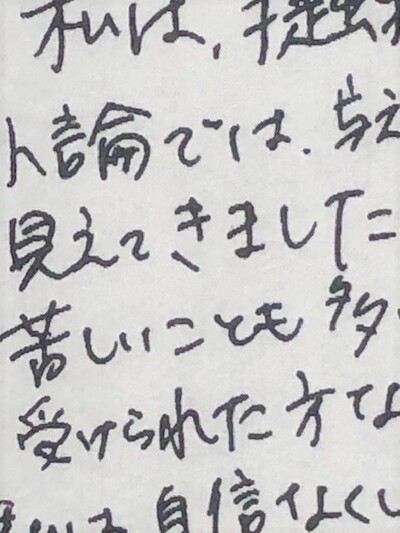 私は、
論では、与え
見えてきました
苦しいことも多
受けられた方
自信なくし